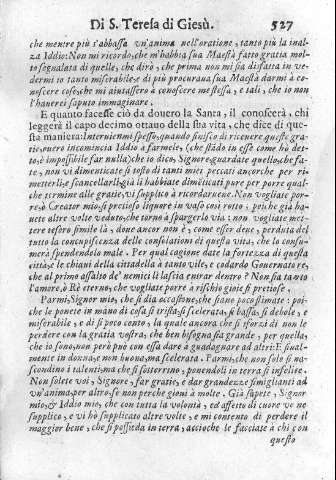 Di S. Teresa di Giesù. 527
che mentre più s'abbassa vn'anima nell'oratione, tanto più la inal-
za Iddio: Non mi ricordo, che m'habbia sua Maestà fatto gratia mol-
to segnalata di quelle, che dirò, che prima non mi sia disfatta in ve-
dermi to tanto miserabile; e di più procuraua sua Maestà darmi à co-
noscere cose, che mi aiutassero à conoscere me stessa, e tali, che io non
l'hauerei saputo immaginare.
E quanto facesse ciò da douero la Santa, il conoscerà, chi
leggerà il capo decimo ottauo della sua vita, che dice di que-
sta maniera: Interuieni spesso, quando finisco di riceuere queste gra-
tie, ouero incomincia Iddio a farmele, (che stãdo in esse come hò det-
to, è impossibile far nulla) che io dica, Signore, guardate quello, che fa-
te, non vi dimenticate sì tosto di tanti miei peccati, ancorche per ri-
metterli, e scancellarli, già li habbiate dimēticati pure per porre qual-
che termine alle gratie, vi supplico à ricordaruene. Non vogliate por-
re, ò Creator mio, sì pretioso liquore in vaso così rotto; poiche già ha-
uete altre volte veduto, che torno à spargerlo via: non vogliate met-
tere tesoro simile là, doue ancor non è, come esser deue, perduta del
tutto la concupiscenza delle consolationi di questa vita, che lo consu-
merà spendendolo male. Per qual cagione date la fortezza di questa
città, e le chiaui della cittadella à tanto vile, e codardo Gouernatore,
che al primo assalto de' nemici li lascia entrar dentro? Non sia tanto
l'amore, ò Rè eterno, che vogliate porre à rischio gioie sì pretiose.
Parmi, Signor mio, che si dia occasione, che siano poco stimate: poi-
che le ponete in mano di cosa sì trista, sì scelerata, sì bassa, sì debole, e
miserabile, e di sì poco conto, la quale ancora che si sforzi di non le
perdere con la gratia vostra, che ben bisogna sia grande, per quella,
che io sono, non però può con essa dare a guadagnar ad altri: E final-
mente in donna, e non buona, ma scelerata. Parmi, che non solo si na-
scondino i talenti, ma che si sotterrino, ponendoli in terra sì infelice.
Non solete voi, Signore, far gratie, e dar grandezze simiglianti ad
vn'anima, per altro, se non perche gioui à molte. Già sapete, Signor
mio, & Iddio mio, che con tutta la volontà, ed affetto di cuore ve ne
supplico, e vi hò supplicato altre volte, e mi contento di perdere il
maggior bene, che si possieda in terra, acciochè le facciate à chi con
questo